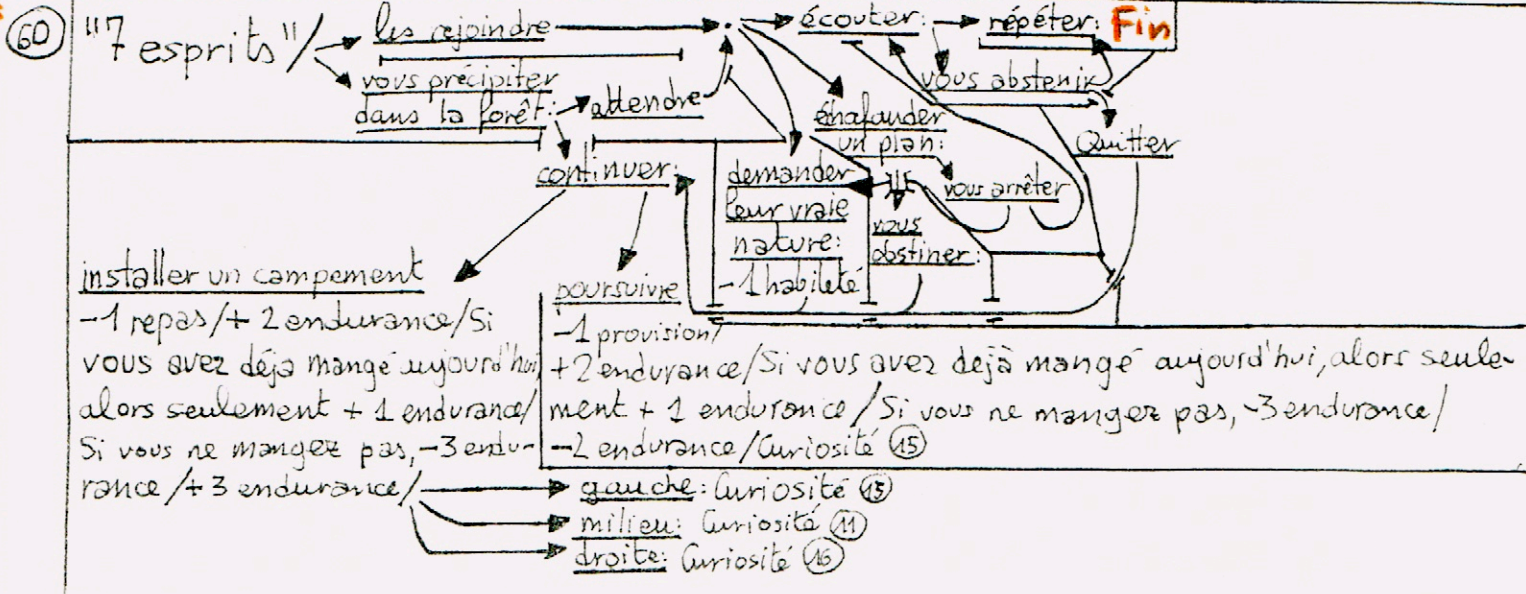 60 "7 esprits"/
les rejoindre
vous précipiter
dans la forêt:
attendre
écouter:
répéter: Fin
vous abstenir
Quitter
échafauder
un plan:
vous arrêter
vous
obstiner:
demander
leur vraie
nature:
-1 habileté
continuer:
installer un campement
-1 repas/+ 2 endurance/Si
vous avez déja mangé aujourd'hui,
alors seulement + 1 endurance/
Si vous ne mangez pas, -3 endu-
rance/+3 endurance/
poursuivre
-1 provision/
+2 endurance/Si vous avez déjà mangé aujourd'hui, alors seule-
ment + 1 endurance/Si vous ne mangez pas, -3 endurance/
-2 endurance/Curiosité 15
gauche: Curiosité 15
milieu: Curiosité 11
droite: Curiosité 16